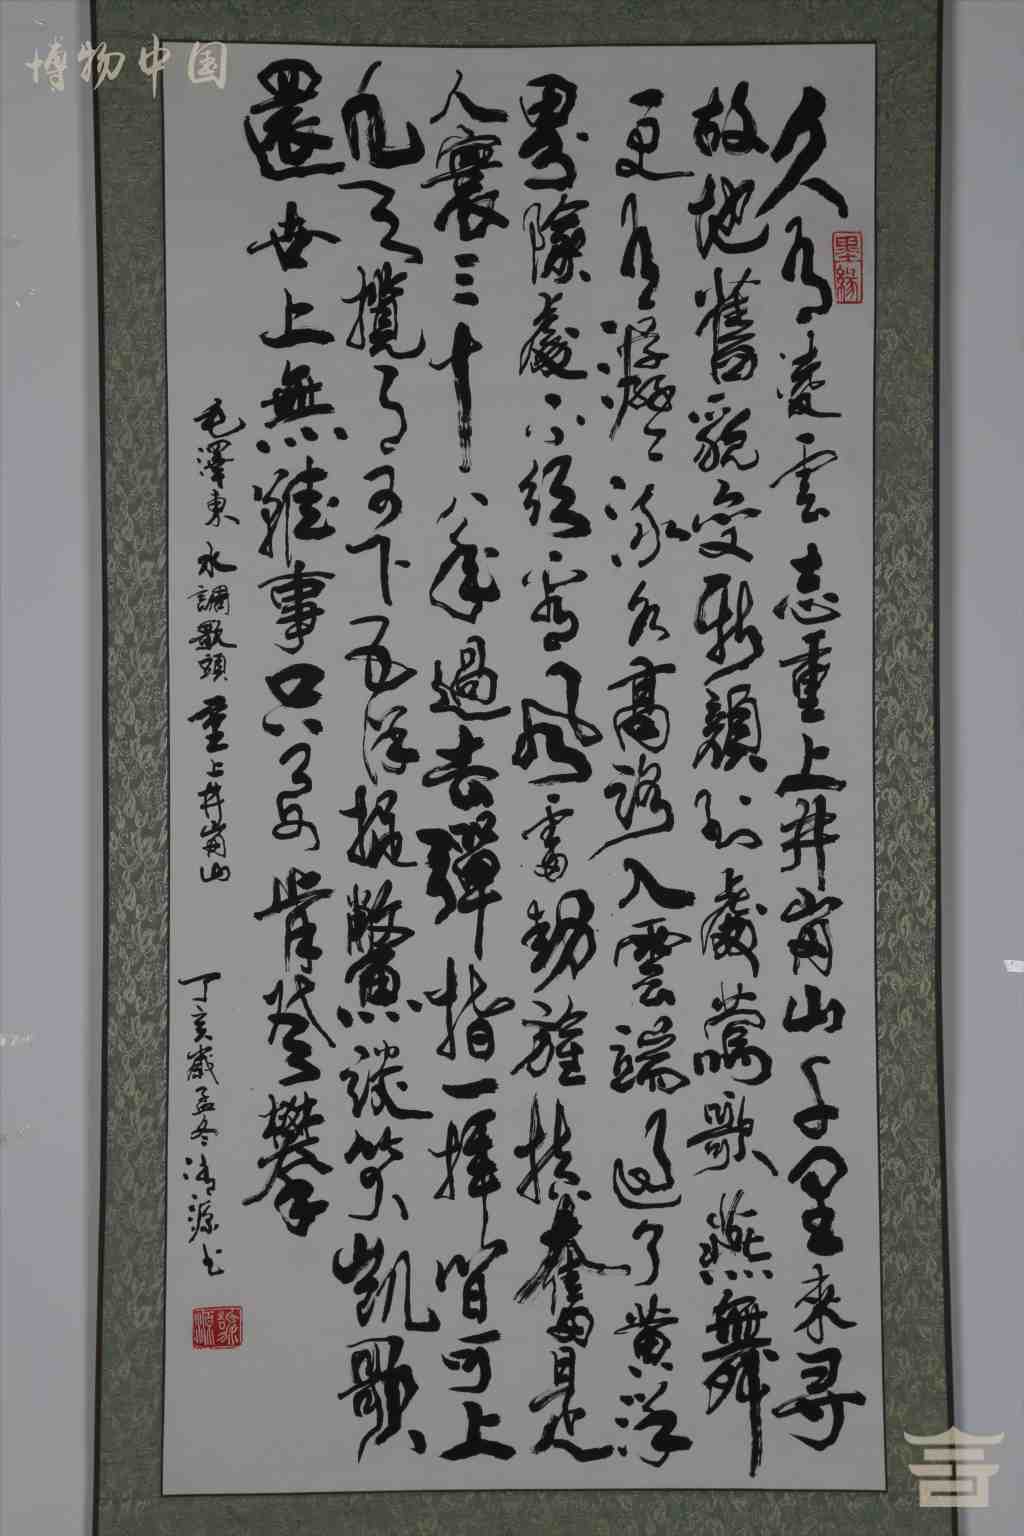 博物中国
久有凌雲志重上井崗山千里來尋
故地舊貌變新顏到處鶯歌燕舞
更有潺潺流水高路入雲端過了黃洋
界險處不須看風雷動旌旗奮是
人寰三十八年過去彈指一揮間可上
九天攬月可下五洋捉鱉談笑凱歌
還世上無難事只要肯登攀
毛澤東 水調歌頭 重上井崗山 丁亥歲孟冬清源书
墨緣